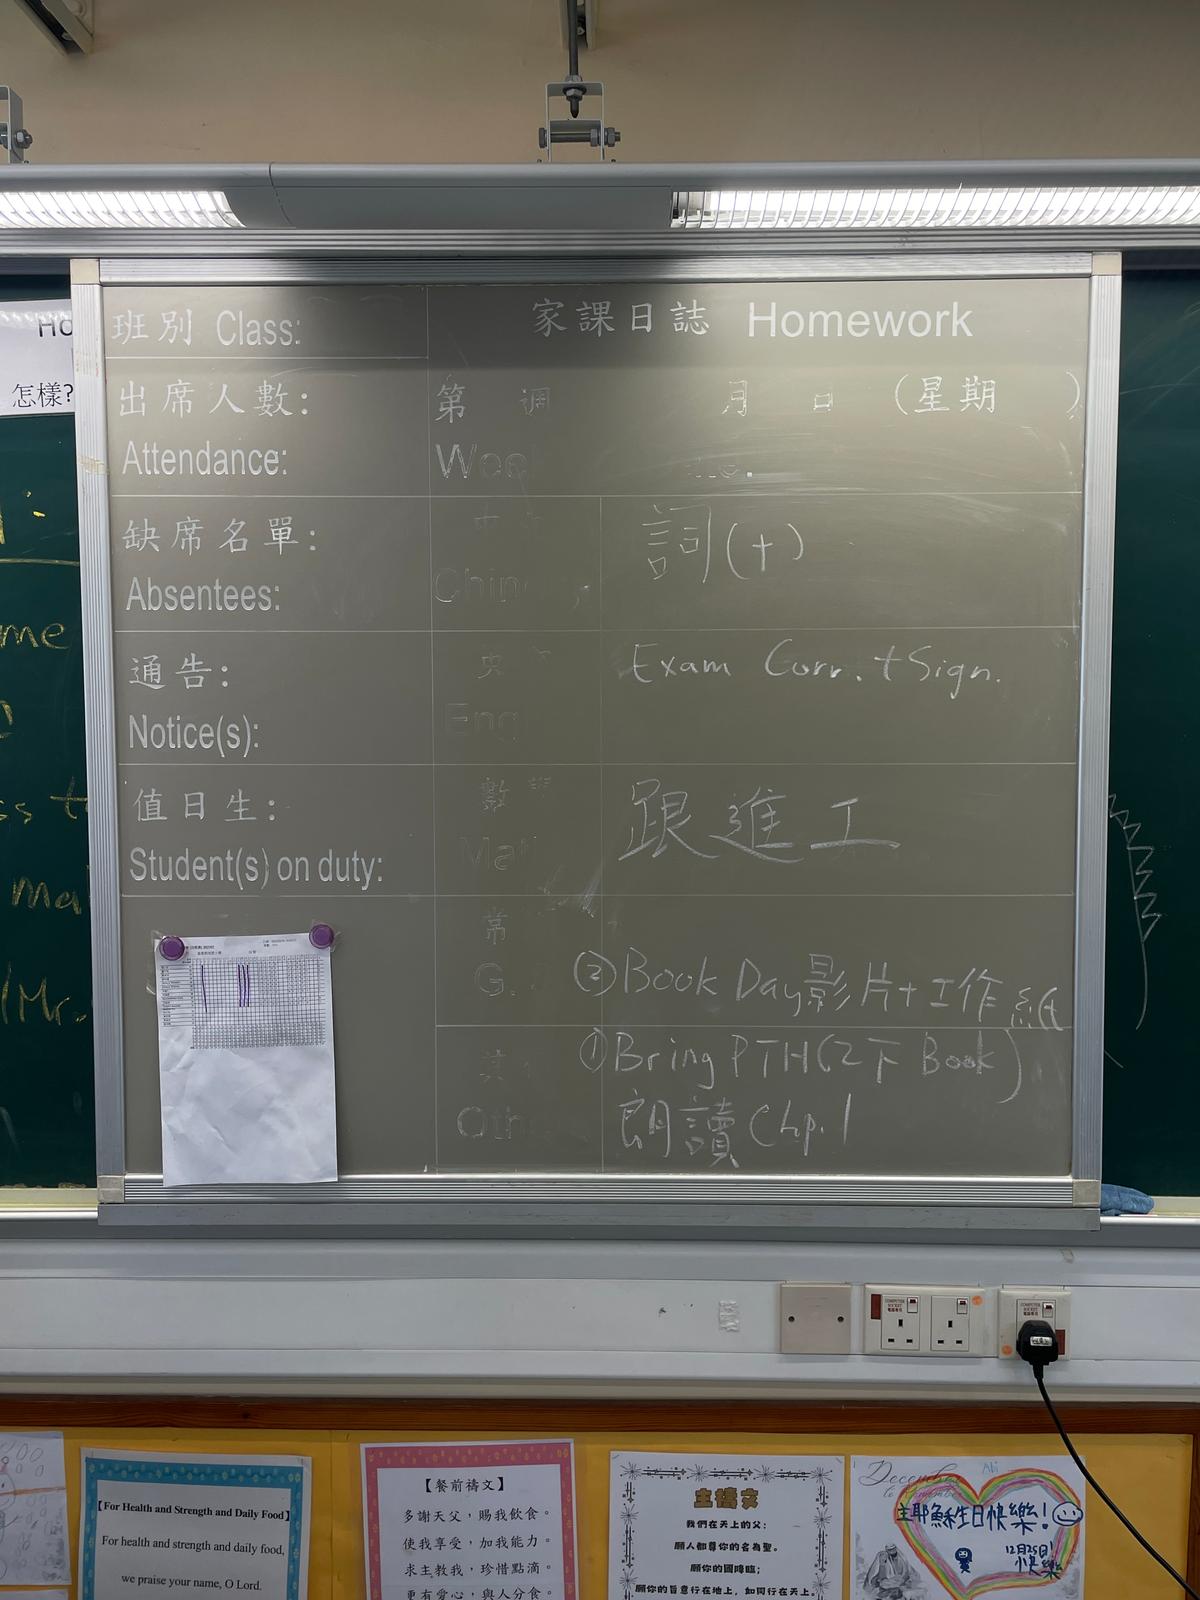 班別 Class:
家課日誌 Homework
出席人數:
第 週 月 日 (星期 )
Attendance:
缺席名單:
詞(十)
Absentees:
通告:
Exam Corr. + Sign.
Notice(s):
值日生:
跟進工
Student(s) on duty:
數
常
G.
② Book Day影片+工作紙
① Bring PTH(2下 Book)
朗讀 Chp. 1
怎樣?
me
ma
Mr.
COMPUTER SOCKET
電腦專用
COMPUTER SOCKET
電腦專用
【For Health and Strength and Daily Food】
For health and strength and daily food,
we praise your name, O Lord.
【餐前禱文】
多謝天父，賜我飲食。
使我享受，加我能力。
求主教我，珍惜點滴。
更有愛心，與人分食。
主禱文
我們在天上的父：
願人都尊你的名為聖。
願你的國降臨；
願你的旨意行在地上，如同行在天上。
December
to Remember
主耶穌生日快樂!
12月25日!
快樂